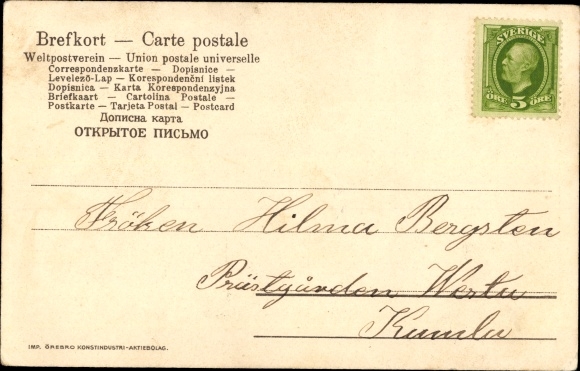 Brefkort — Carte postale
Weltpostverein — Union postale universelle
Correspondenzkarte — Dopisnice —
Levelező-Lap — Korespondenční listek
Dopisnica — Karta Korespondenzyjna
Briefkaart — Cartolina Postale —
Postkarte — Tarjeta Postal — Postcard
Дописна карта
ОТКРЫТОЕ ПИСЬМО
SVERIGE
ÖRE 5 ÖRE
Fröken Hilma Bergsten
Prästgården Westra
Kumla
IMP. ÖREBRO KONSTINDUSTRI-AKTIEBOLAG.